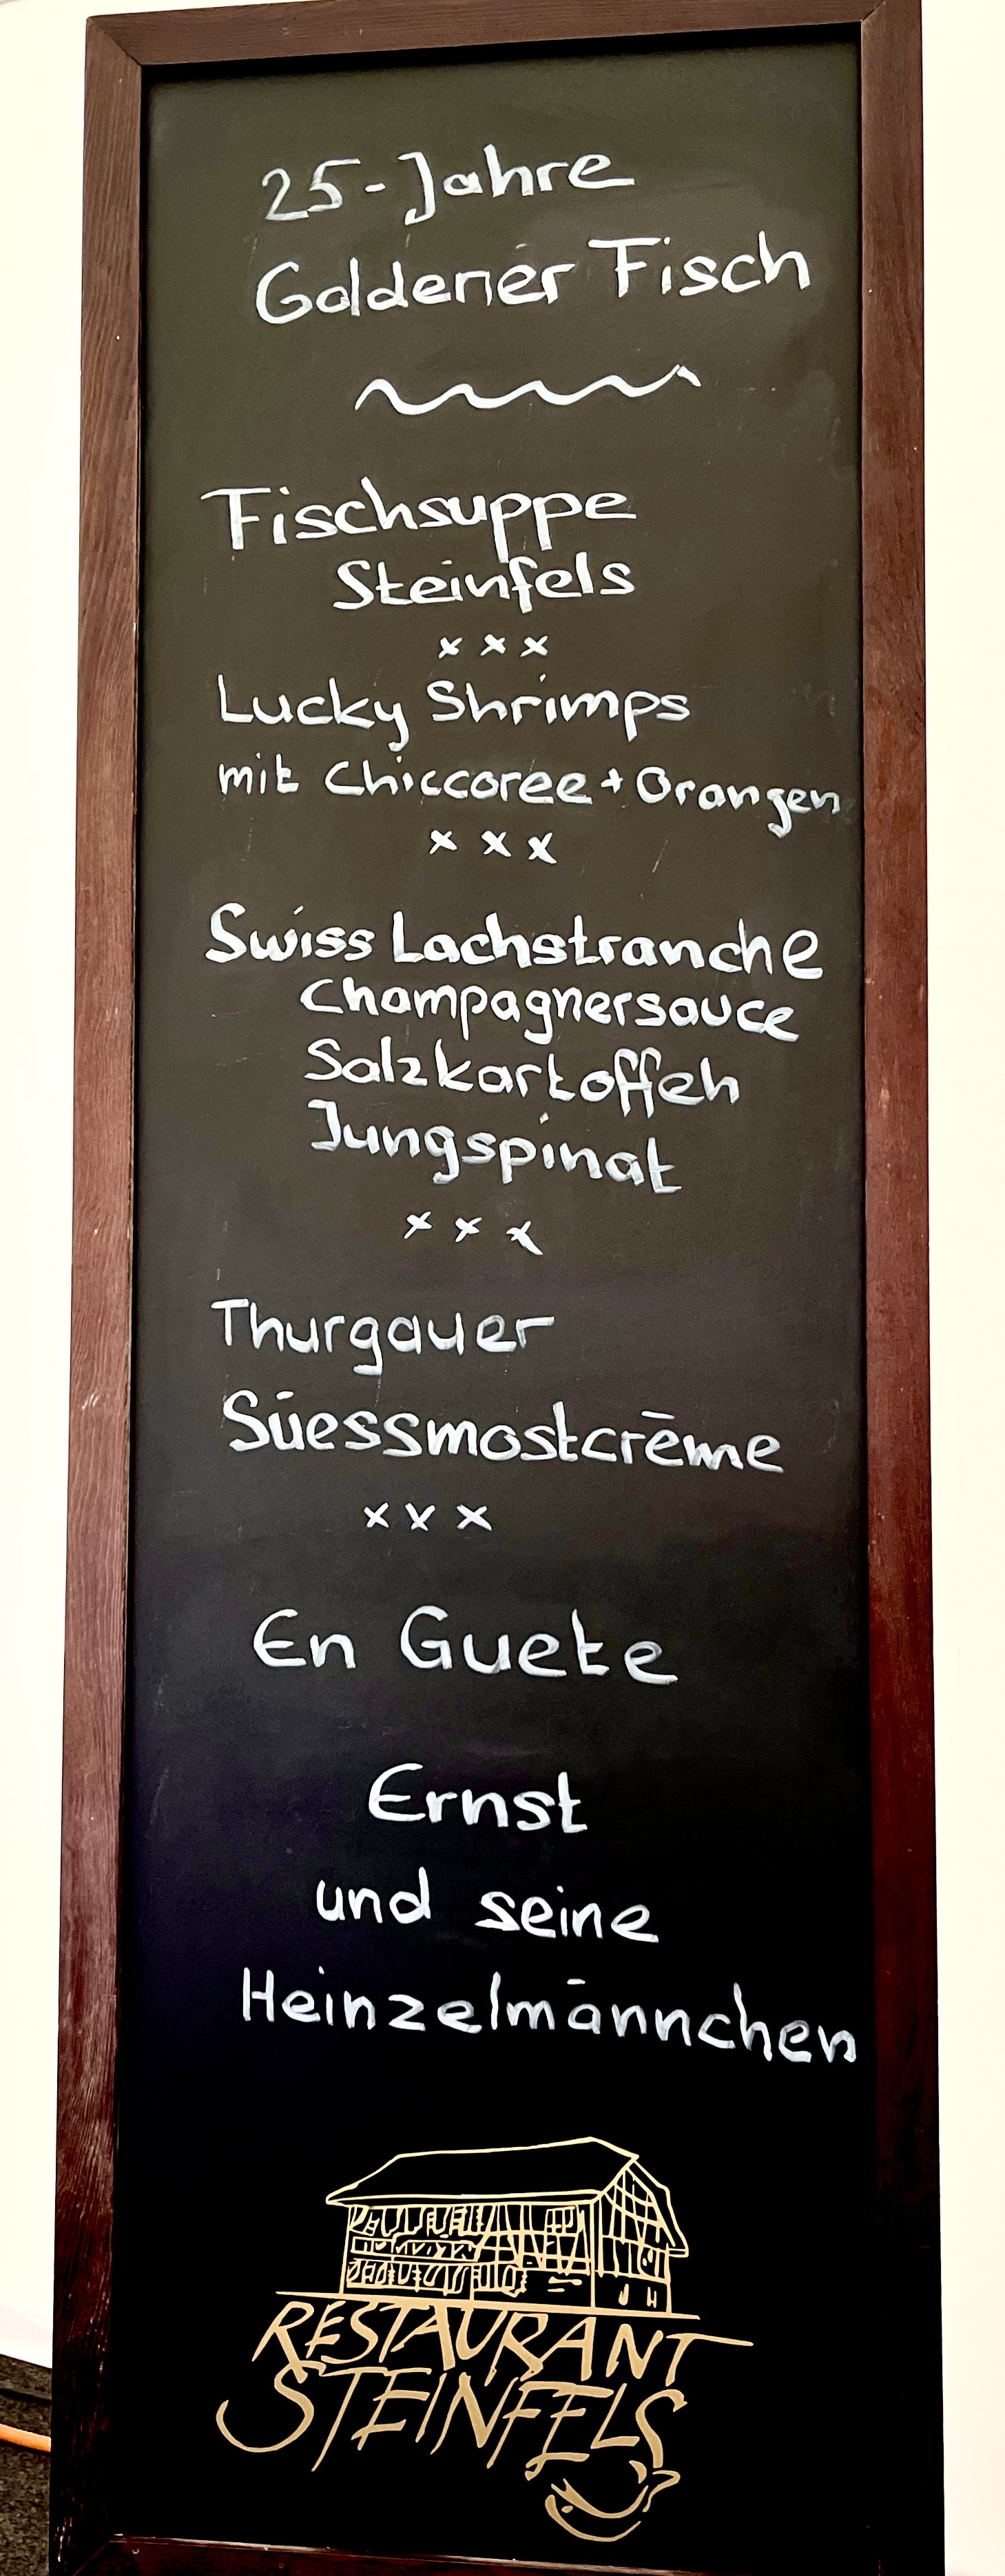 25-Jahre
Goldener Fisch
Fischsuppe
Steinfels
x x x
Lucky Shrimps
mit Chiccoree + Orangen
x x x
Swiss Lachstranche
Champagnersauce
Salzkartoffeln
Jungspinat
x x x
Thurgauer
Süessmostcrème
x x x
En Guete
Ernst
und seine
Heinzelmännchen
RESTAURANT
STEINFELS